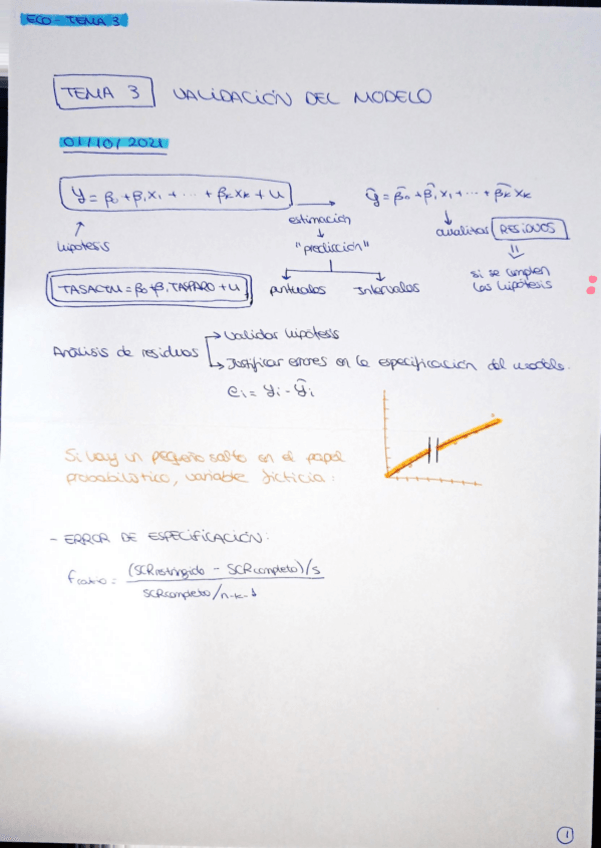 ECO - TEMA 3
TEMA 3 VALIDACIÓN DEL MODELO
01/10/2021
y = β0 + β1x1 + ... + βkxk + u
ŷ = β̂0 + β̂1x1 + ... + β̂kxk
estimación
hipótesis
"predicción"
analizar RESIDUOS
si se cumplen
las hipótesis
TASACTU = β0 + β1TASPARO + u
puntuales Intervalos
Análisis de residuos
Validar hipótesis
Justificar errores en la especificación del modelo.
ei = yi - ŷi
Si hay un pequeño salto en el papel
probabilístico, variable ficticia:
- ERROR DE ESPECIFICACIÓN:
fratio = (SCRrestringido - SCRcompleto)/s
SCRcompleto/n-k-1
1